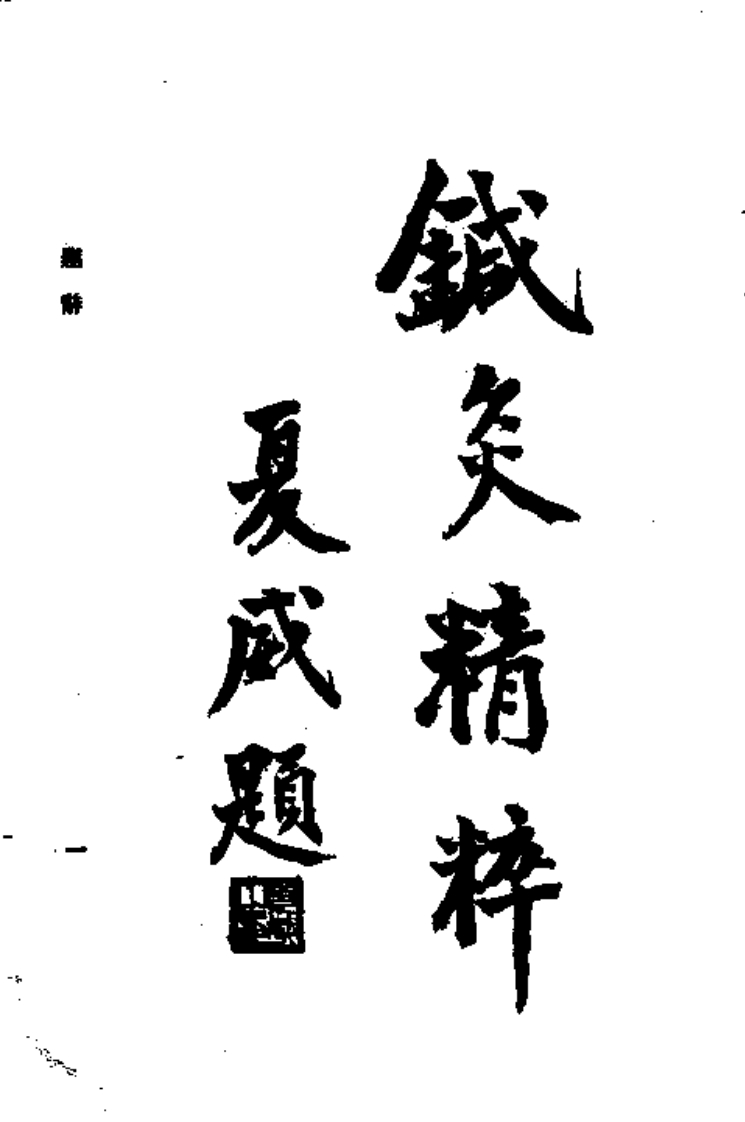 鍼灸精粹
夏威題
一